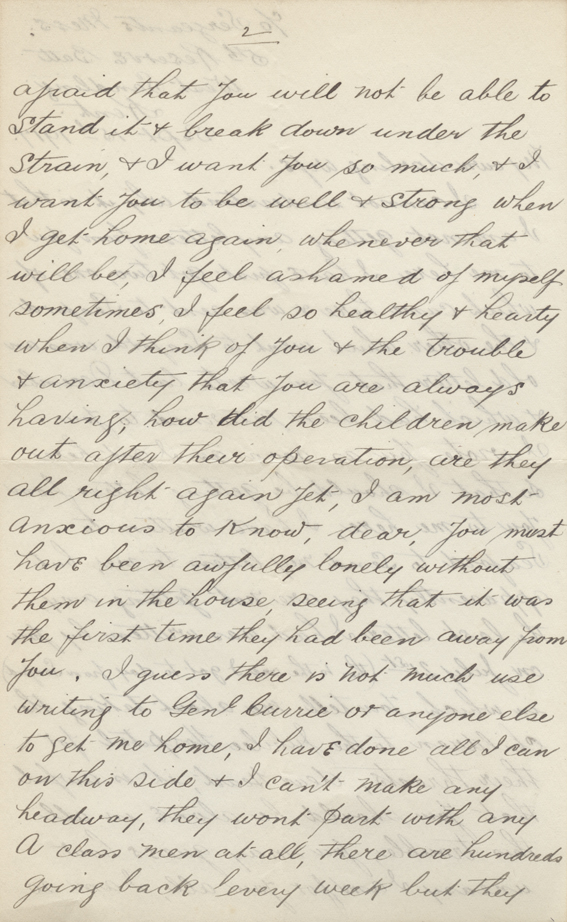 2
afraid that you will not be able to
stand it & break down under the
strain, & I want you so much, & I
want you to be well & strong when
I get home again, whenever that
will be, I feel ashamed of myself
sometimes, I feel so healthy & hearty
when I think of you & the trouble
& anxiety that you are always
having, how did the children make
out after their operation, are they
all right again yet, I am most
anxious to know, dear, you must
have been awfully lonely without
them in the house, seeing that it was
the first time they had been away from
you. I guess there is not much use
writing to Genl Currie or anyone else
to get me home, I have done all I can
on this side & I can't make any
headway, they wont part with any
A class men at all, there are hundreds
going back every week but they